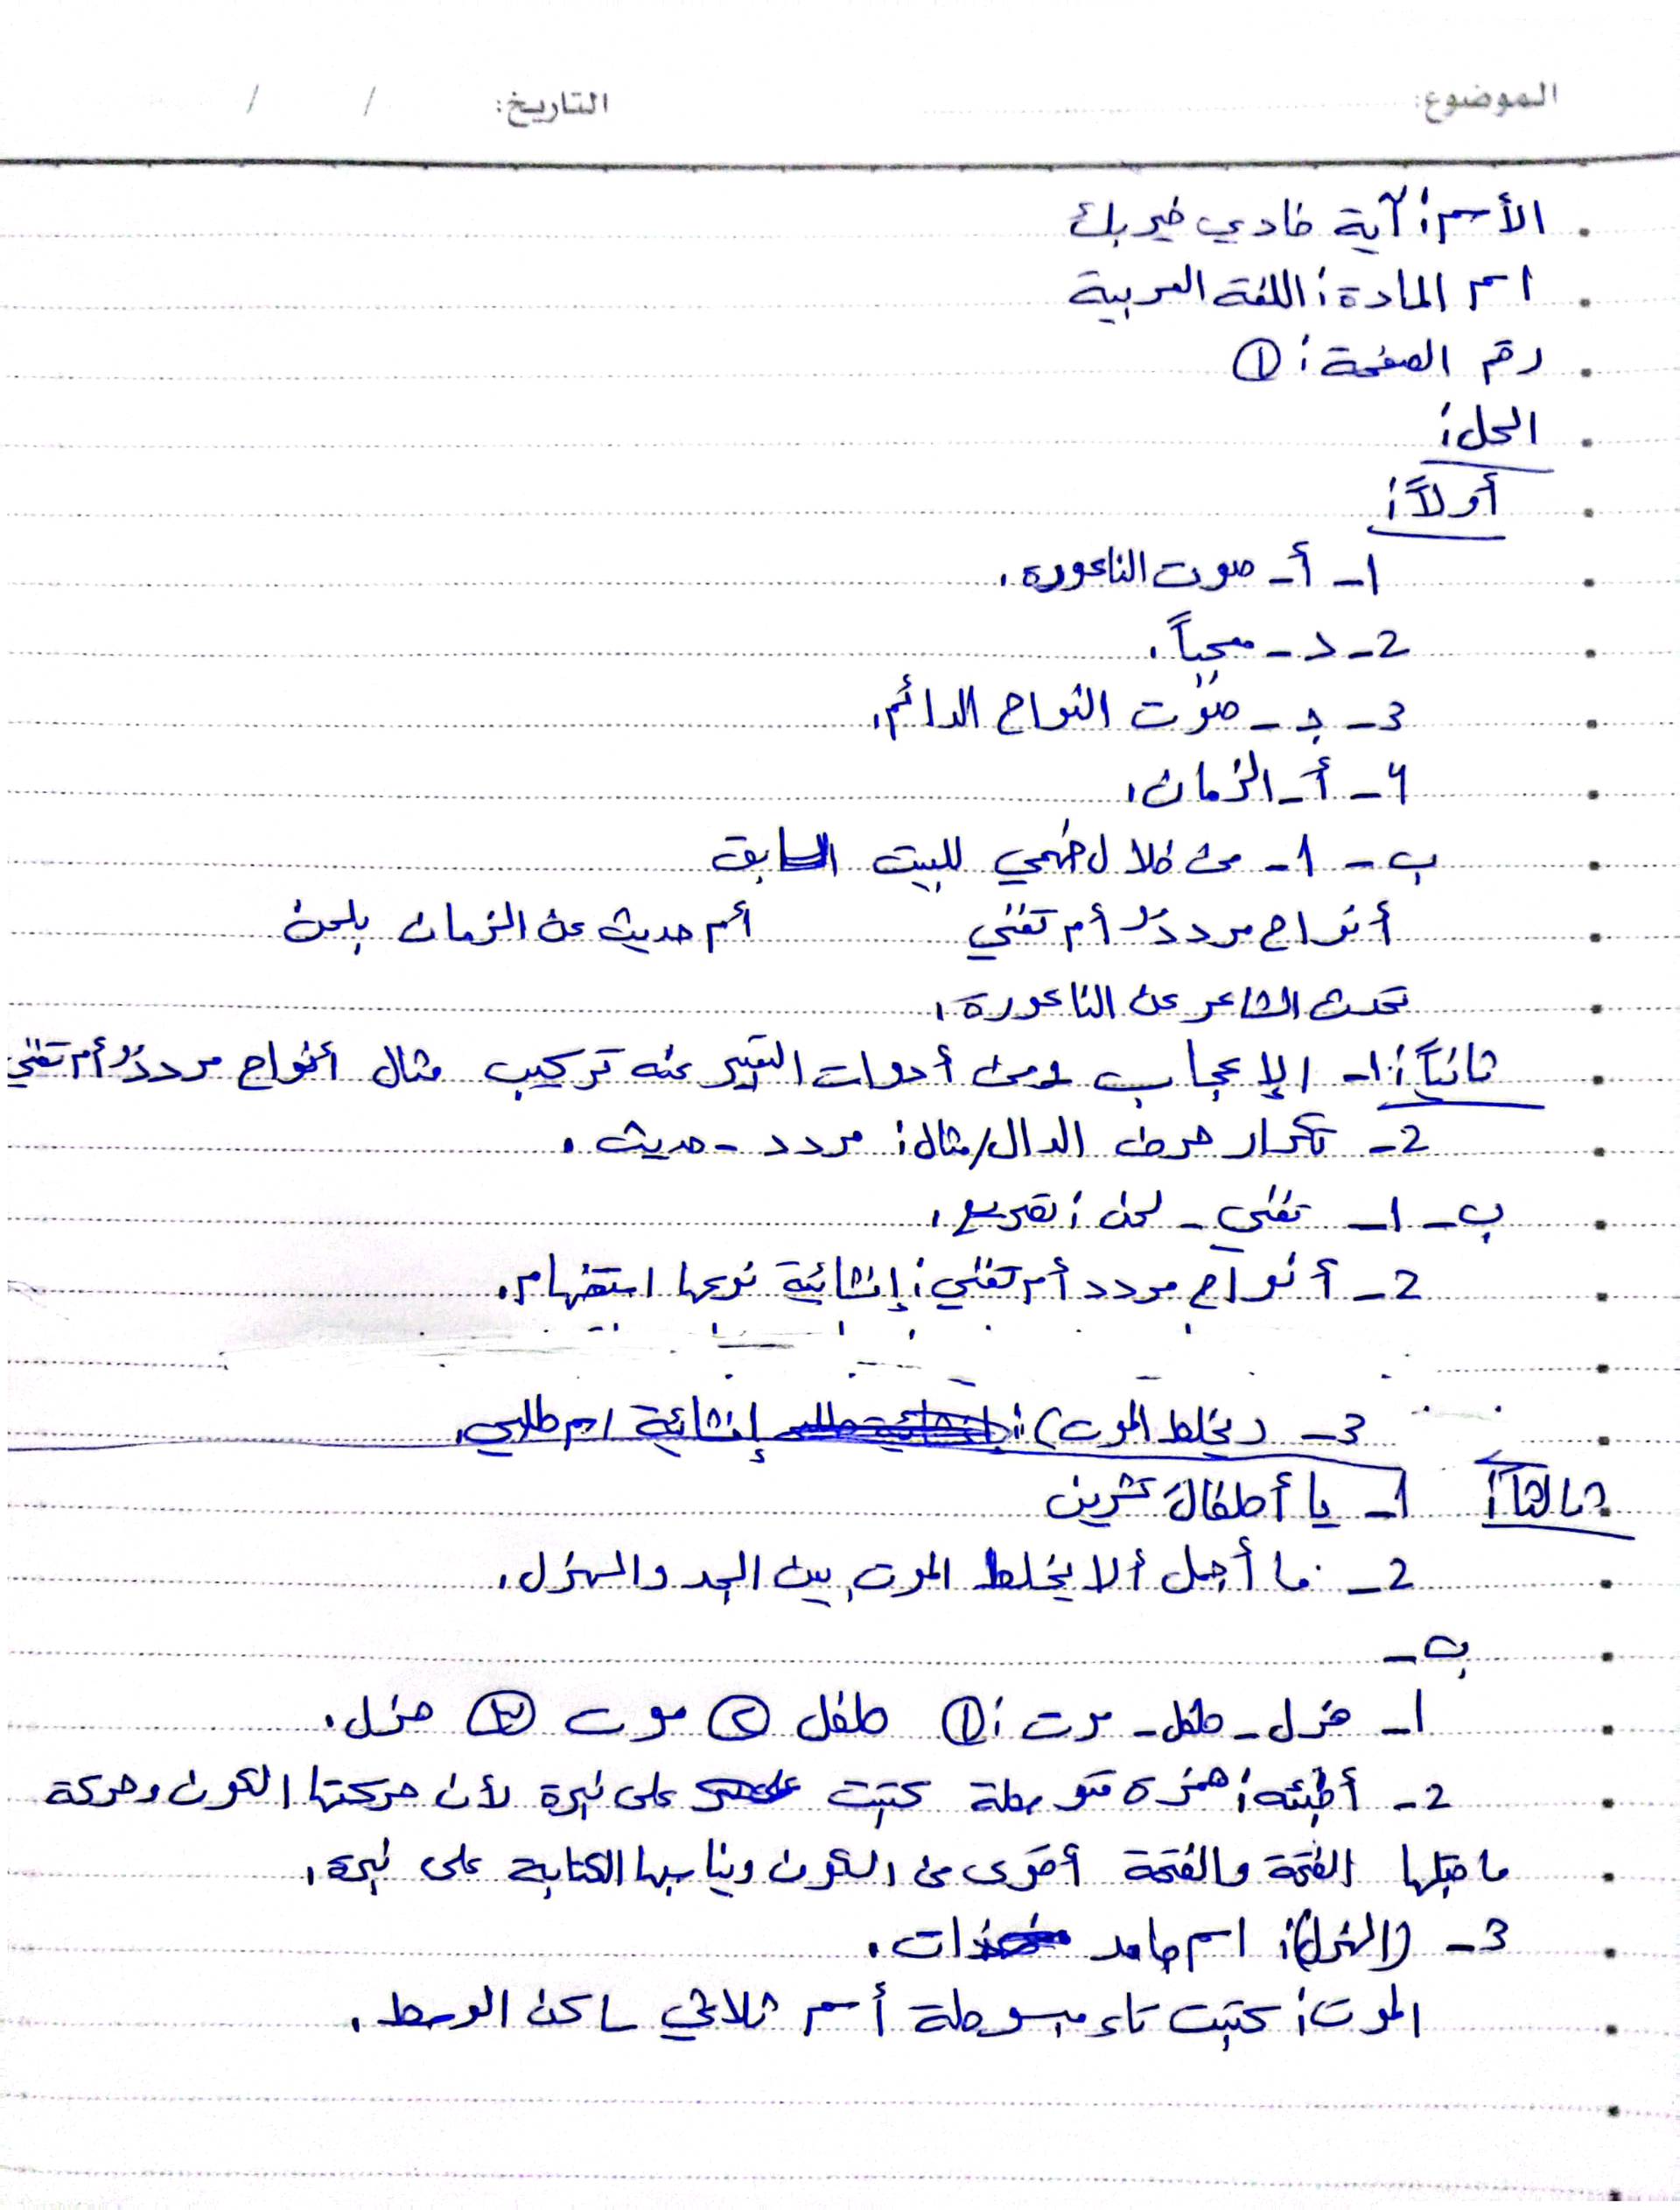 الموضوع: التاريخ: / /
الأسم: آية فادي خير بك
اسم المادة: اللغة العربية
رقم الصفحة: ①
الحل:
أولاً:
1- أ- صوت الناعورة.
2- د- محباً.
3- د- صوت النواح الدائم.
4- أ- الزمان.
ب- 1- من خلال فهمي للبيت السابق
أنواح مرددٌ أم تغني أم حديث عن الزمان بلحن
تحدث الشاعر عن الناعورة.
ثانياً: 1- الإعجاب ومن أدوات التعبير عنه تركيب مثال أنواح مرددٌ أم تغني
2- تكرار حرف الدال/مثال: مردد - حديث.
ب- 1- تغني - لحن: تصريع.
2- أنواح مردد أم تغني: إنشائية نوعها استفهام.
3- (يخلط الموت): إنشائية طلبي.
ثالثاً: 1- يا أطفالَ تشرين
2- ما أجمل ألا يخلط الموت بين الجد والهزل.
ب-
1- هزل - طفل - موت: ① طفل ② موت ③ هزل.
2- أطبئه: همزة متوسطة كتبت على نبرة لأن حركتها السكون وحركة
ما قبلها الفتحة والفتحة أقوى من السكون ويناسبها الكتابة على نبرة.
3- (الهزل): اسم جامد ذات.
الموت: كتبت تاء مبسوطة أسم ثلاثي ساكن الوسط.